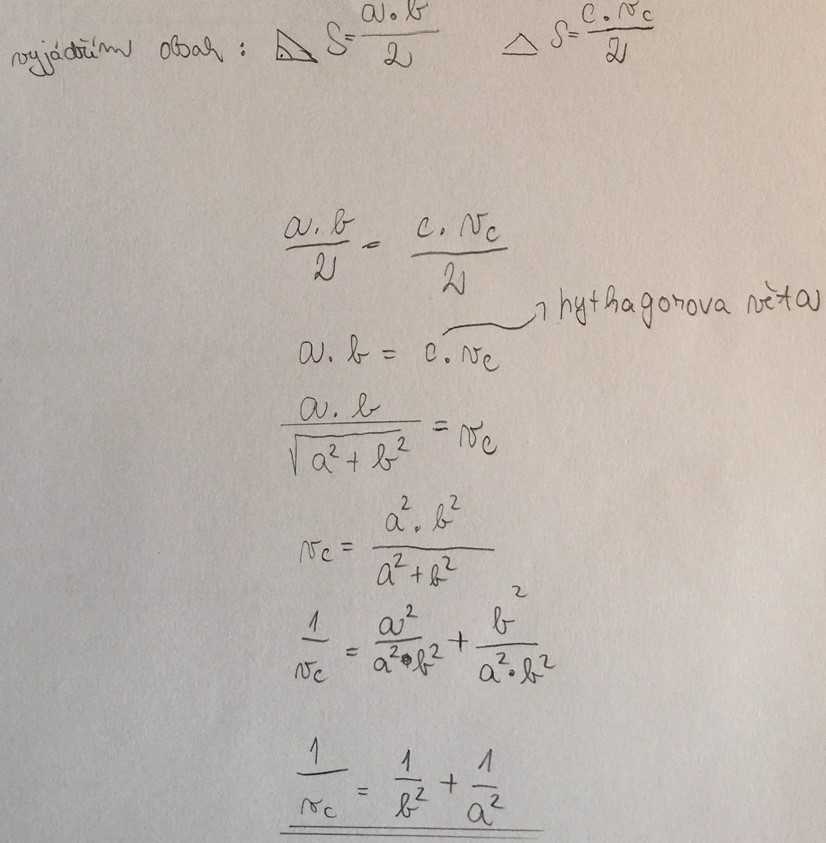 vyjádřím obsah : S = a . b / 2 S = c . vc / 2
a . b / 2 = c . vc / 2
pythagorova věta
a . b = c . vc
a . b / √(a² + b²) = vc
vc = a² . b² / a² + b²
1 / vc = a² / a² . b² + b² / a² . b²
1 / vc = 1 / b² + 1 / a²